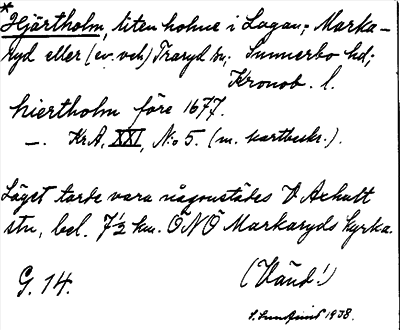 * Hjärtholm, liten holme i Lagan; Marka-
ryd eller (ev. och) Traryd sn; Sunnerbo hd;
Kronob. l.
hiertholm före 1677.
—. Kr.A, XXI, N:o 5. (m. kartbeskr.).
Läget torde vara någonstädes V Axhult
stn, bel. 7½ km. ÖNÖ Markaryds kyrka.
G. 14.
(Vänd!)
1938.